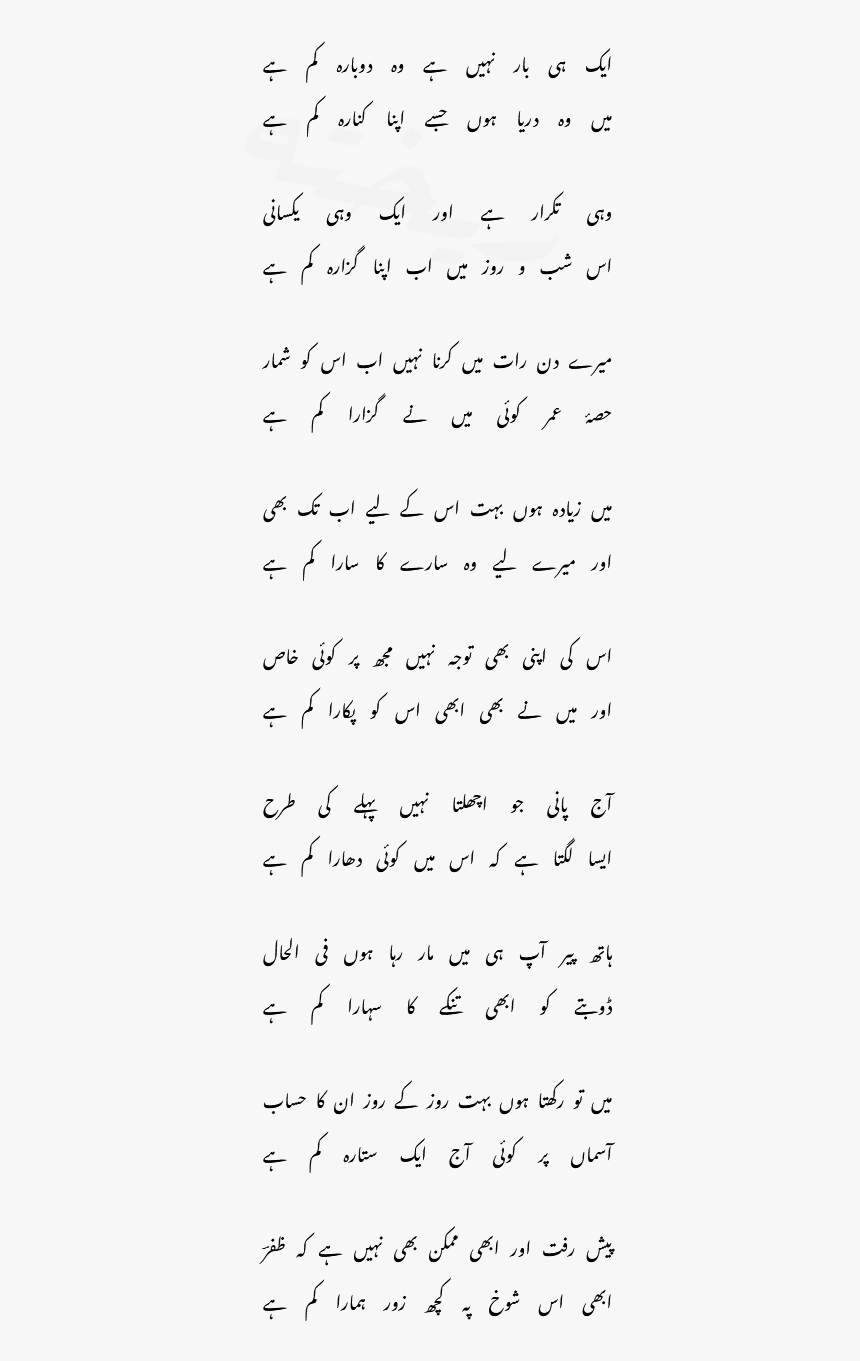 ایک ہی بار نہیں ہے وہ دوبارہ کم ہے
میں وہ دریا ہوں جسے اپنا کنارہ کم ہے
وہی تکرار ہے اور ایک وہی یکسانی
اس شب و روز میں اب اپنا گزارہ کم ہے
میرے دن رات میں کرنا نہیں اب اس کو شمار
حصۂ عمر کوئی میں نے گزارا کم ہے
میں زیادہ ہوں بہت اس کے لیے اب تک بھی
اور میرے لیے وہ سارے کا سارا کم ہے
اس کی اپنی بھی توجہ نہیں مجھ پر کوئی خاص
اور میں نے بھی ابھی اس کو پکارا کم ہے
آج پانی جو اچھلتا نہیں پہلے کی طرح
ایسا لگتا ہے کہ اس میں کوئی دھارا کم ہے
ہاتھ پیر آپ ہی میں مار رہا ہوں فی الحال
ڈوبتے کو ابھی تنکے کا سہارا کم ہے
میں تو رکھتا ہوں بہت روز کے روز ان کا حساب
آسماں پر کوئی آج ایک ستارہ کم ہے
پیش رفت اور ابھی ممکن بھی نہیں ہے کہ ظفرؔ
ابھی اس شوخ پہ کچھ زور ہمارا کم ہے